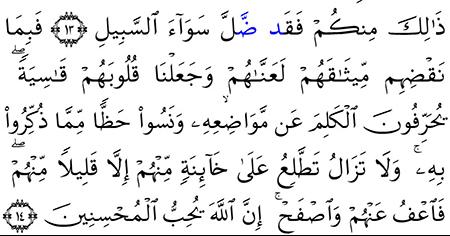 ذَٰلِكَ مِنكُمْ فَقَد ضَّلَّ سَوَآءَ اَ۬لسَّبِيلِ ۝١٣ فَبِمَا
نَقْضِهِم مِّيثَٰقَهُمْ لَعَنَّٰهُمْ وَجَعَلْنَا قُلُوبَهُمْ قَٰسِيَةٗۖ
يُحَرِّفُونَ اَ۬لْكَلِمَ عَن مَّوَاضِعِهِۦ وَنَسُواْ حَظّٗا مِّمَّا ذُكِّرُواْ
بِهِۦۚ وَلَا تَزَالُ تَطَّلِعُ عَلَىٰ خَآئِنَةٖ مِّنْهُمْ إِلَّا قَلِيلٗا مِّنْهُمْۖ
فَاَعْفُ عَنْهُمْ وَاَصْفَحْۚ إِنَّ اَ۬للَّهَ يُحِبُّ اُ۬لْمُحْسِنِينَ ۝١٤